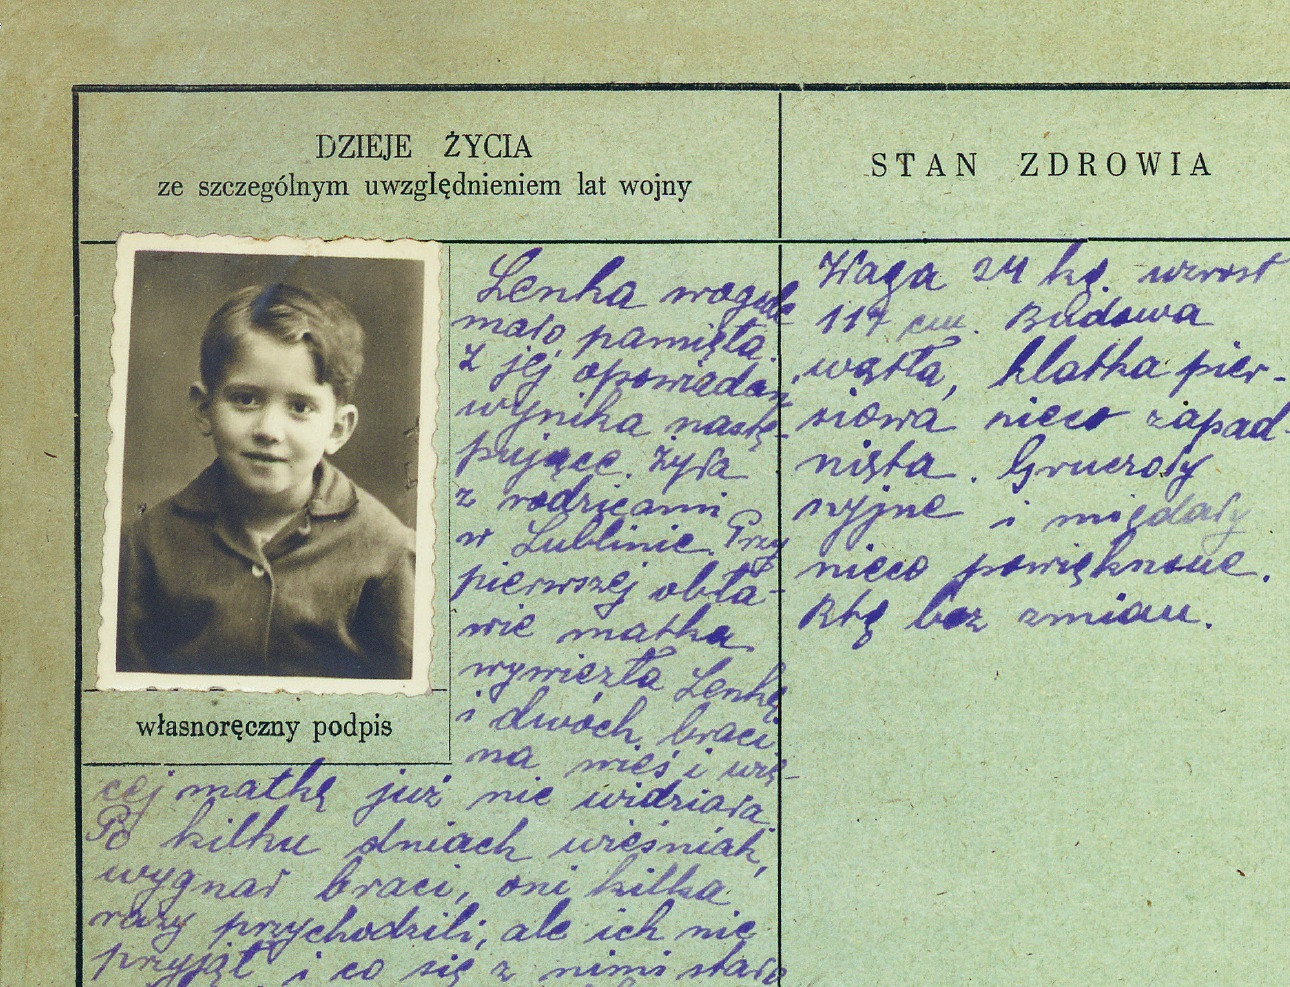 DZIEJE ŻYCIA
ze szczególnym uwzględnieniem lat wojny
własnoręczny podpis
Lenka wogóle
mało pamięta.
Z jej opowiadań
wynika nastę-
pujące. Żyła
z rodzicami
w Lublinie. Przy
pierwszej obła-
wie matka
wywiezła Lenkę
i dwóch braci
na wieś i wię-
cej matkę już nie widziała.
Po kilku dniach wieśniak,
wygnał braci, oni kilka
razy przychodzili, ale ich nie
przyjął i co się z nimi stało
STAN ZDROWIA
Waga 24 kg. wzrost
117 cm. Budowa
wątła, klatka pier-
siowa nieco zapad-
nięta. Gruczoły
szyjne i migdały
nieco powiększone.
Rtg bez zmian.